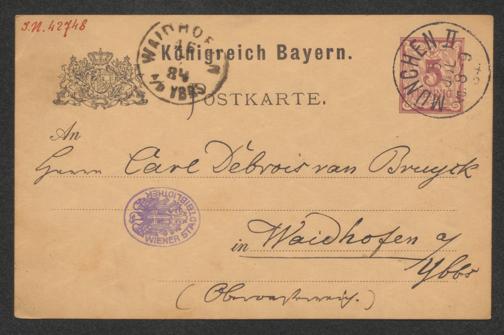 I.N. 42748
WAIDHOFEN
84
a/d YBBS
Königreich Bayern.
POSTKARTE.
MÜNCHEN II
8-9
5
An
Herrn Carl Debrois van Bruyck
WIENER STADTBIBLIOTHEK
in Waidhofen a/
Ybbs
(Oberoesterreich.)